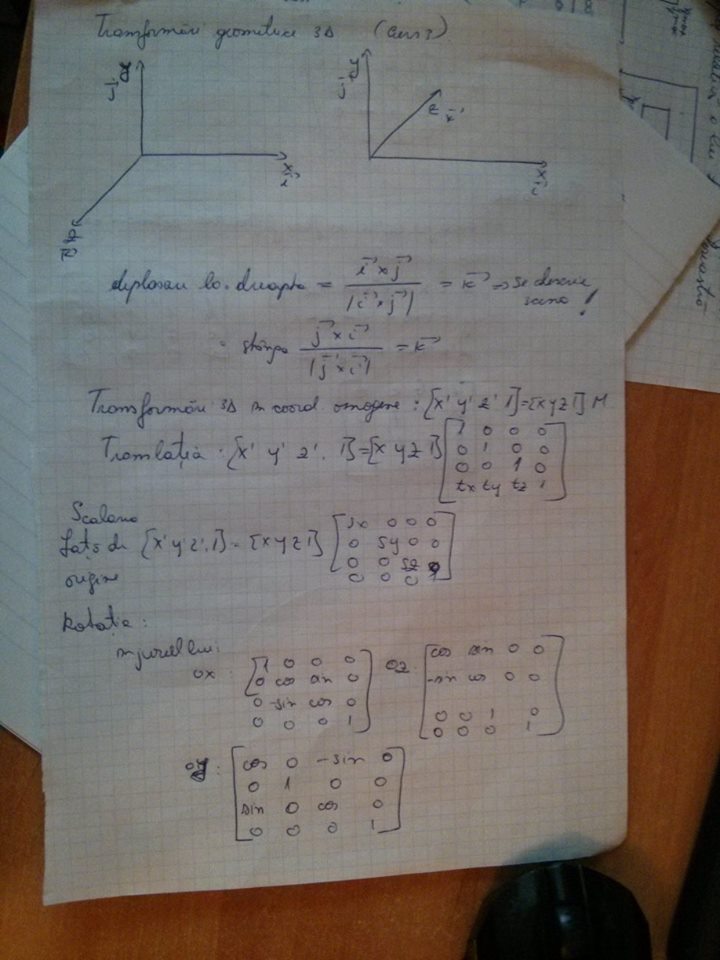 Transformări geometrice 3D (Curs 3)
y
j
x
i
z
k
y
j
z
x
i
dreapta = i x j / |i x j| = k => se descrie scena !
stânga j x i / |j x i| = k
Transformări 3D în coord omogene : [x' y' z' 1]=[x y z 1] M
Translația : [x' y' z' 1]=[x y z 1] [1 0 0 0
0 1 0 0
0 0 1 0
tx ty tz 1]
Scalarea
față de [x' y' z' 1] = [x y z 1] [sx 0 0 0
origine
0 sy 0 0
0 0 sz 0
0 0 0 1]
Rotația :
în jurul lui:
ox : [1 0 0 0
0 cos sin 0
0 -sin cos 0
0 0 0 1]
oz : [cos sin 0 0
-sin cos 0 0
0 0 1 0
0 0 0 1]
oy : [cos 0 -sin 0
0 1 0 0
sin 0 cos 0
0 0 0 1]